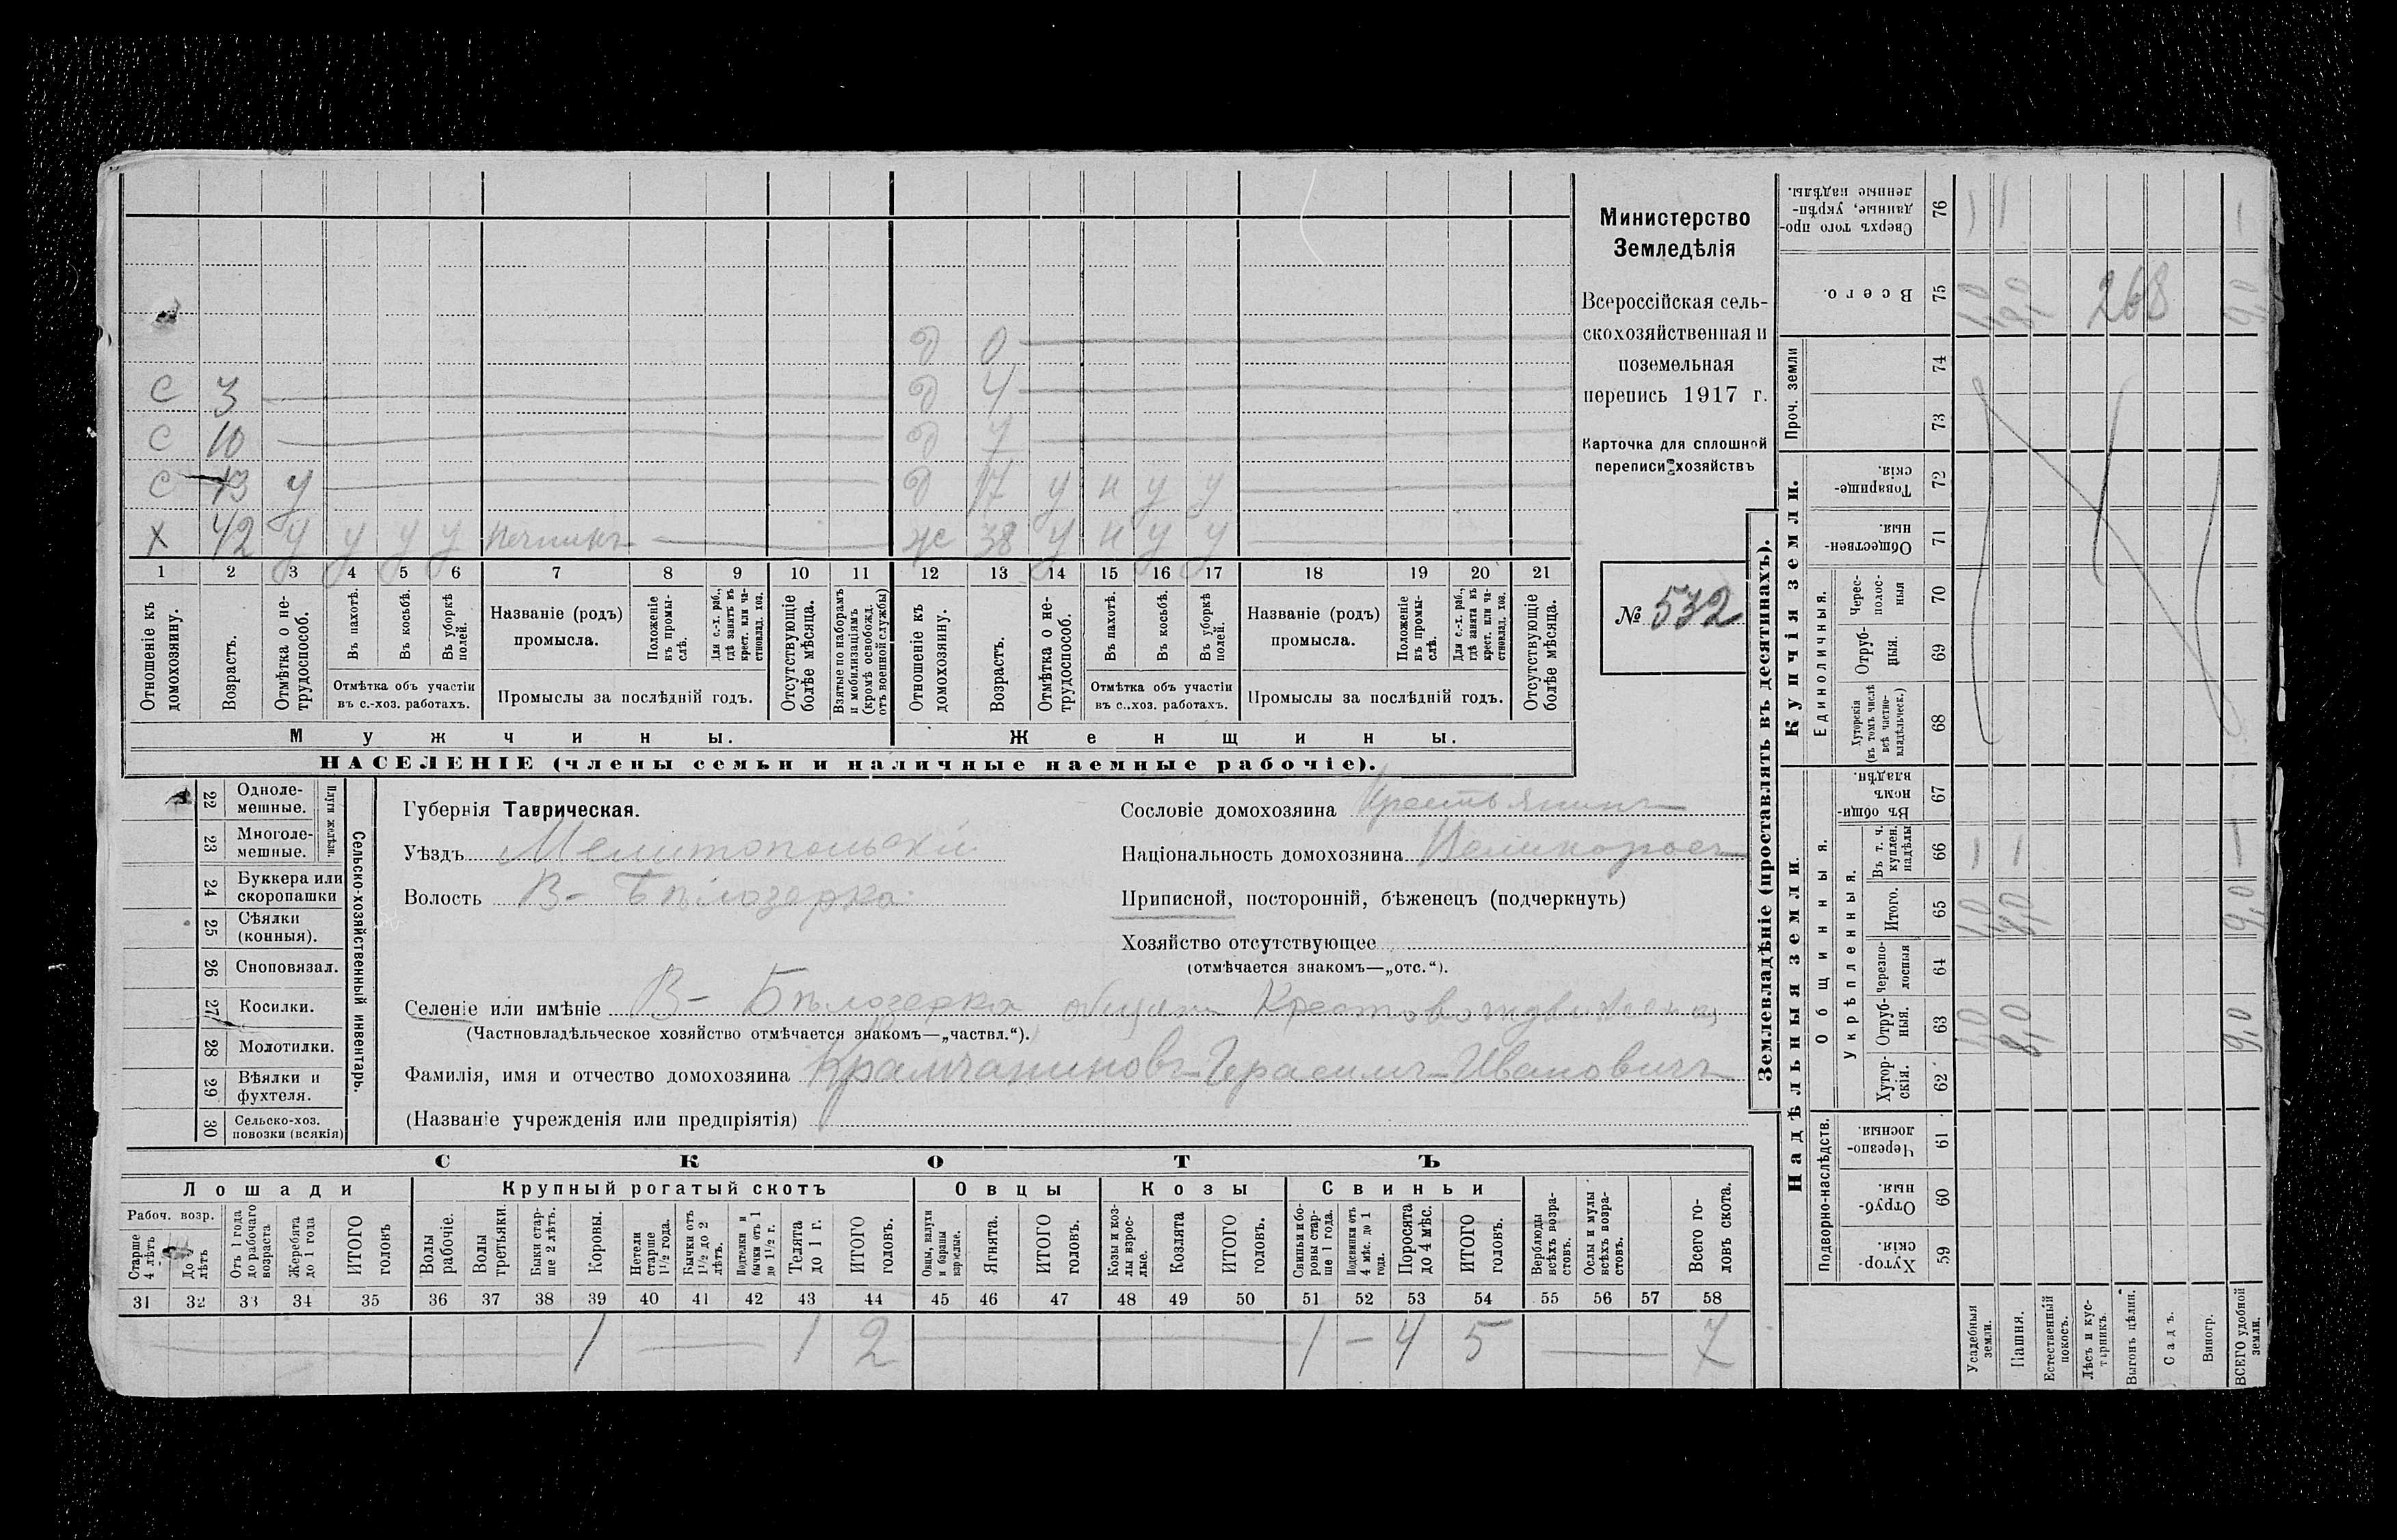 Министерство
Земледѣлія
Всероссійская сель-
скохозяйственная и
поземельная
перепись 1917 г.
Карточка для сплошной
переписи хозяйствъ
№ 532
д 0
с 3 д 4
с 10 д 7
с 13 у д 17 у н у у
х 42 у у у у Печникъ ж 38 у н у у
1 2 3 4 5 6 7 8 9 10 11 12 13 14 15 16 17 18 19 20 21
Отношеніе къ домохозяину.
Возрастъ.
Отмѣтка о не-трудоспособ.
Въ пахотѣ.
Въ косьбѣ.
Въ уборкѣ полей.
Отмѣтка объ участіи
въ с.-хоз. работахъ.
Названіе (родъ)
промысла.
Положеніе въ промы-слѣ.
Для с.-х. раб., гдѣ занятъ въ крест. или ча-стновлад. хоз.
Промыслы за послѣдній годъ.
Отсутствующіе болѣе мѣсяца.
Взятые по наборамъ и мобилизаціямъ (кромѣ освобожд. отъ военной службы)
Отношеніе къ домохозяину.
Возрастъ.
Отмѣтка о не-трудоспособ.
Въ пахотѣ.
Въ косьбѣ.
Въ уборкѣ полей.
Отмѣтка объ участіи
въ с..хоз. работахъ.
Названіе (родъ)
промысла.
Положеніе въ промы-слѣ.
Для с.-х. раб., гдѣ занятъ въ крест. или ча-стновлад. хоз.
Промыслы за послѣдній годъ.
Отсутствующіе болѣе мѣсяца.
Мужчины. Женщины.
НАСЕЛЕНІЕ (члены семьи и наличные наемные рабочіе).
22 Одноле-мешные.
23 Многоле-мешные.
Плуги желѣзн.
24 Буккера или скоропашки
25 Сѣялки (конныя).
26 Сноповязал.
27 Косилки.
28 Молотилки.
29 Вѣялки и фухтеля.
30 Сельско-хоз. повозки (всякія)
Сельско-хозяйственный инвентарь.
Губернія Таврическая.
Уѣздъ Мелитопольскій
Волость В- Бѣлозерка
Сословіе домохозяина Крестьянинъ
Національность домохозяина Великороссъ
Приписной, посторонній, бѣженецъ (подчеркнуть)
Хозяйство отсутствующее
(отмѣчается знакомъ—„отс.“).
Селеніе или имѣніе В- Бѣлозерка
(Частновладѣльческое хозяйство отмѣчается знакомъ—„частвл.“).
Фамилія, имя и отчество домохозяина Крамчаниновъ-Герасимъ-Ивановичъ
(Названіе учрежденія или предпріятія)
СКОТЪ
Лошади Крупный рогатый скотъ Овцы Козы Свиньи
Рабоч. возр.
Старше 4 лѣтъ
До 4 лѣтъ
Отъ 1 года до рабочаго возраста
Жеребята до 1 года
ИТОГО головъ
Волы рабочіе.
Волы третьяки.
Быки стар-ше 2 лѣтъ.
Коровы.
Нетели старше 1½ года.
Бычки отъ 1½ до 2 лѣтъ.
Подтелки и бычки отъ 1 до 1½ г.
Телята до 1 г.
ИТОГО головъ.
Овцы, валухи и бараны взрослые.
Ягнята.
ИТОГО головъ.
Козы и коз-лы взрос-лые.
Козлята
ИТОГО головъ.
Свиньи и бо-ровы стар-ше 1 года.
Подсвинки отъ 4 мѣс. до 1 года.
Поросята до 4 мѣс.
ИТОГО головъ.
Верблюды всѣхъ возра-стовъ.
Ослы и мулы всѣхъ возра-стовъ.
Всего го-ловъ скота.
31 32 33 34 35 36 37 38 39 40 41 42 43 44 45 46 47 48 49 50 51 52 53 54 55 56 57 58
1 — 1 2 — 1 — 4 5 — 7
Землевладѣніе (проставлять въ десятинахъ).
Надѣльныя земли
Купчія земли.
Проч. земли
Подворно-наслѣдств.
Общинныя.
Укрѣпленныя.
Единоличныя.
Хутор-скія. 59
Отруб-ныя. 60
Черезпо-лосныя. 61
Хутор-скія. 62
Отруб-ныя. 63
Черезпо-лосныя 64
Итого. 65
Въ т. ч. куплен. надѣлы 66
Въ общи-номъ владѣн. 67
Хуторскія (въ томъ числѣ всѣ частно-владѣльческ.) 68
Отруб-ныя. 69
Черес-полос-ныя 70
Обществен-ныя. 71
Товарище-скія. 72
73
74
Всего. 75
Сверхъ того про-данные, укрѣп-ленные надѣлы. 76
Усадебныя земли.
Пашня. 8,0 8,0 8,0
Естественный покосъ.
Лѣсъ и кус-тарникъ.
Выгонъ цѣлин.
Садъ.
Виногр.
ВСЕГО удобной земли. 9,0 9,0 9,0
268